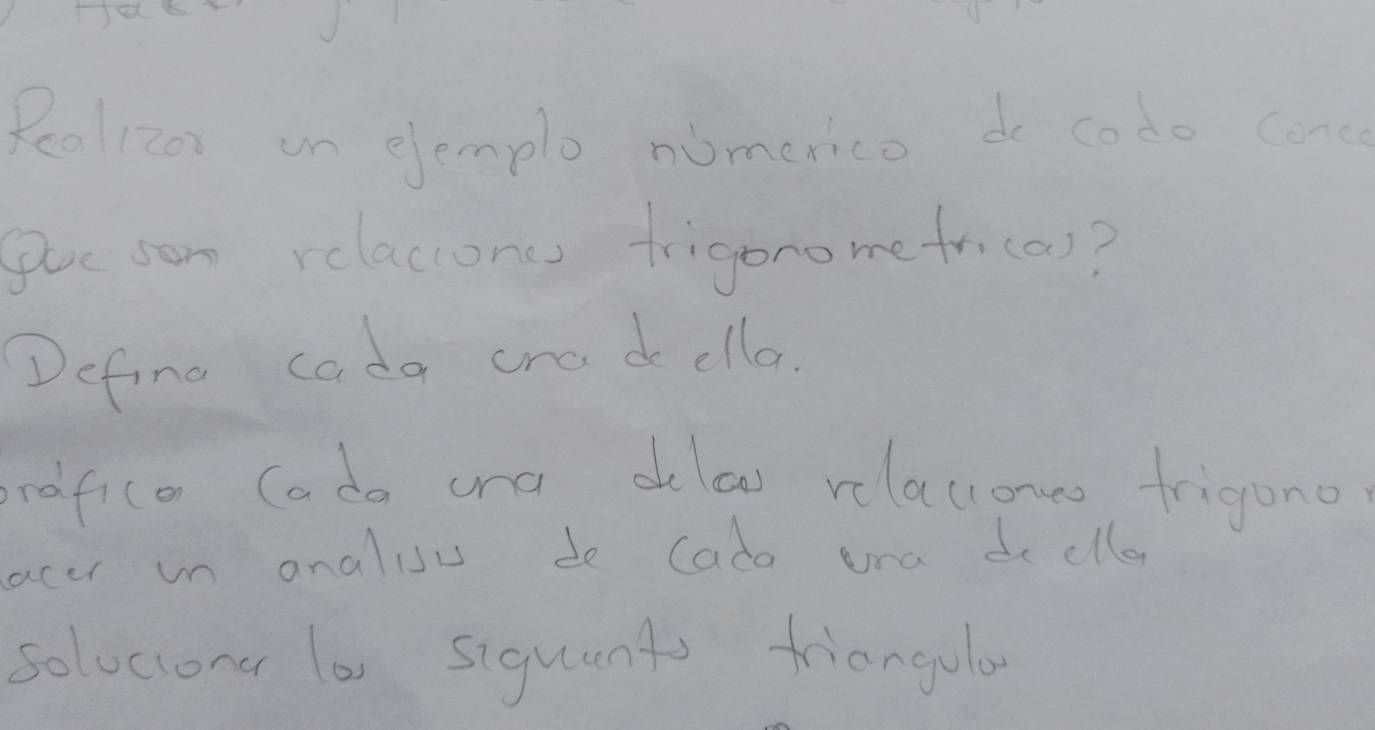 Realizar un ejemplo númerico de cada
Que son relaciones trigonometricas?
Defina cada una de ella.
cada una de las relaciones
un analisis de cada una de ella
solucionar los siguients triangulos